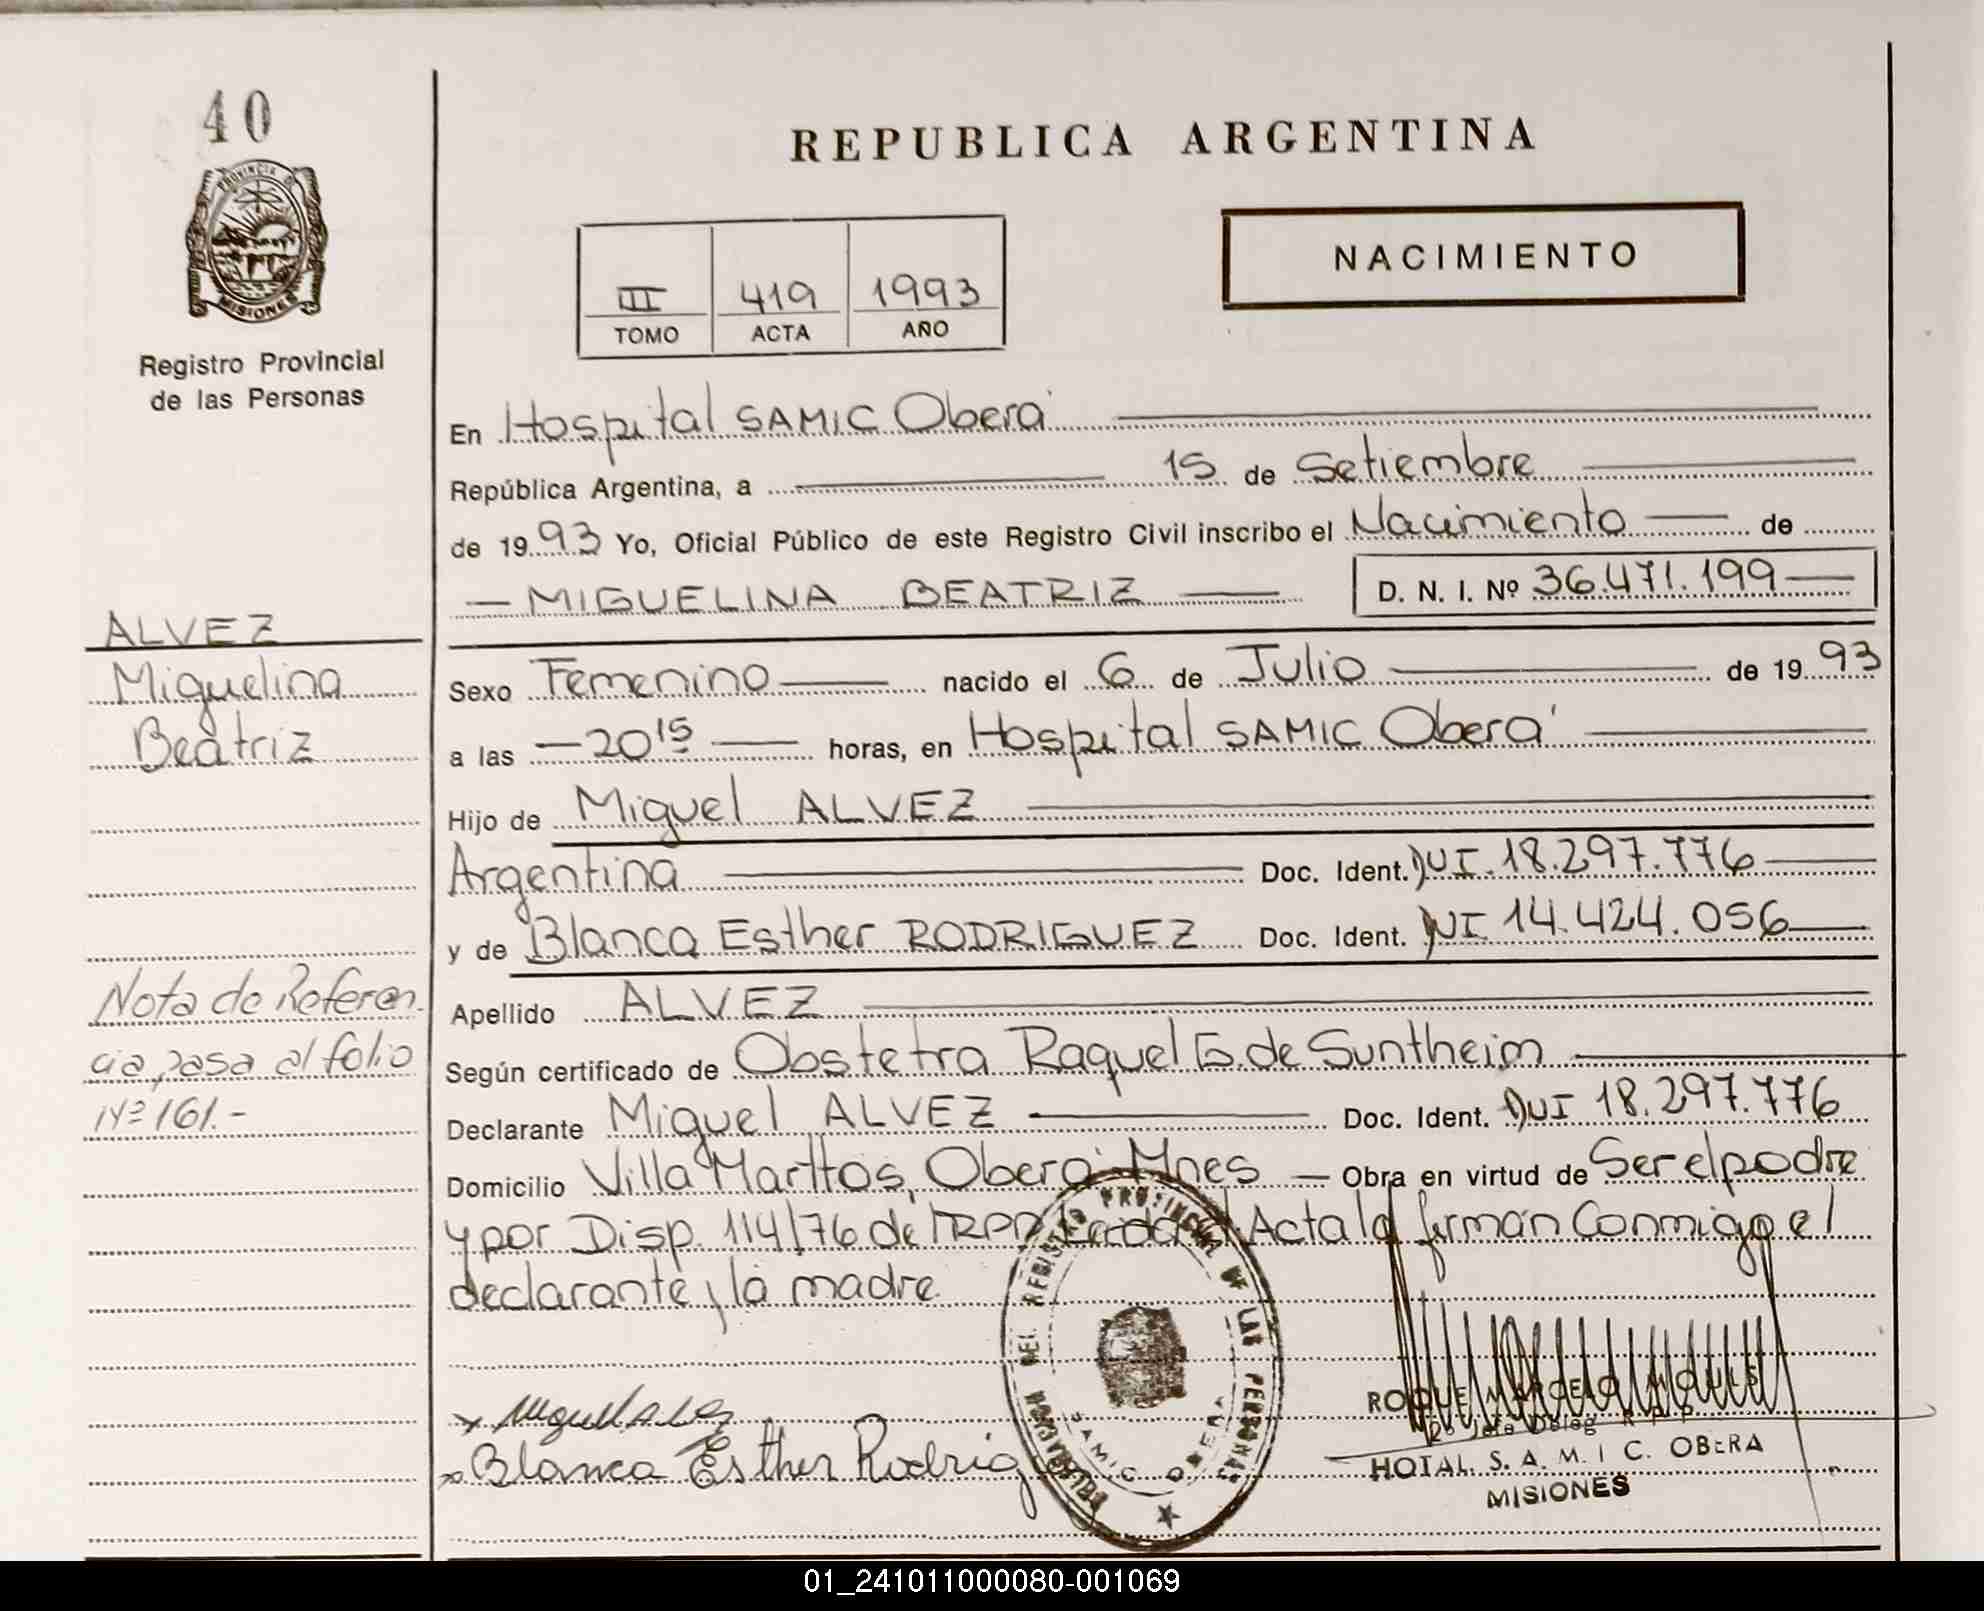 40
PROVINCIA D
MISIONES
Registro Provincial
de las Personas
REPUBLICA ARGENTINA
NACIMIENTO
III 419 1993
TOMO ACTA AÑO
En Hospital SAMIC Oberá
República Argentina, a 15 de Setiembre
de 1993 Yo, Oficial Público de este Registro Civil inscribo el Nacimiento de
MIGUELINA BEATRIZ D. N. I. Nº 36.471.199
ALVEZ
Miguelina
Beatriz
Sexo Femenino nacido el 6 de Julio de 1993
a las 20 15 horas, en Hospital SAMIC Oberá
Hijo de Miguel ALVEZ
Argentina Doc. Ident. DNI 18.297.776
y de Blanca Esther RODRIGUEZ Doc. Ident. DNI 14.424.056
Nota de Referen-
cia, pasa al folio
Nº 161.-
Apellido ALVEZ
Según certificado de Obstetra Raquel G. de Suntheim
Declarante Miguel ALVEZ Doc. Ident. DNI 18.297.776
Domicilio Villa Marttos, Oberá Mnes Obra en virtud de Ser el padre
y por Disp. 114/76 de Acta la firman Conmigo el
declarante y la madre
Miguel Alvez
Blanca Esther Rodrig
DELEGACION DEL REGISTRO PROVINCIAL DE LAS PERSONAS
SAMIC OBERA
ROQUE
2º Jefe Deleg R P P
HOTAL. S. A. M. I C. OBERA
MISIONES
01_241011000080-001069